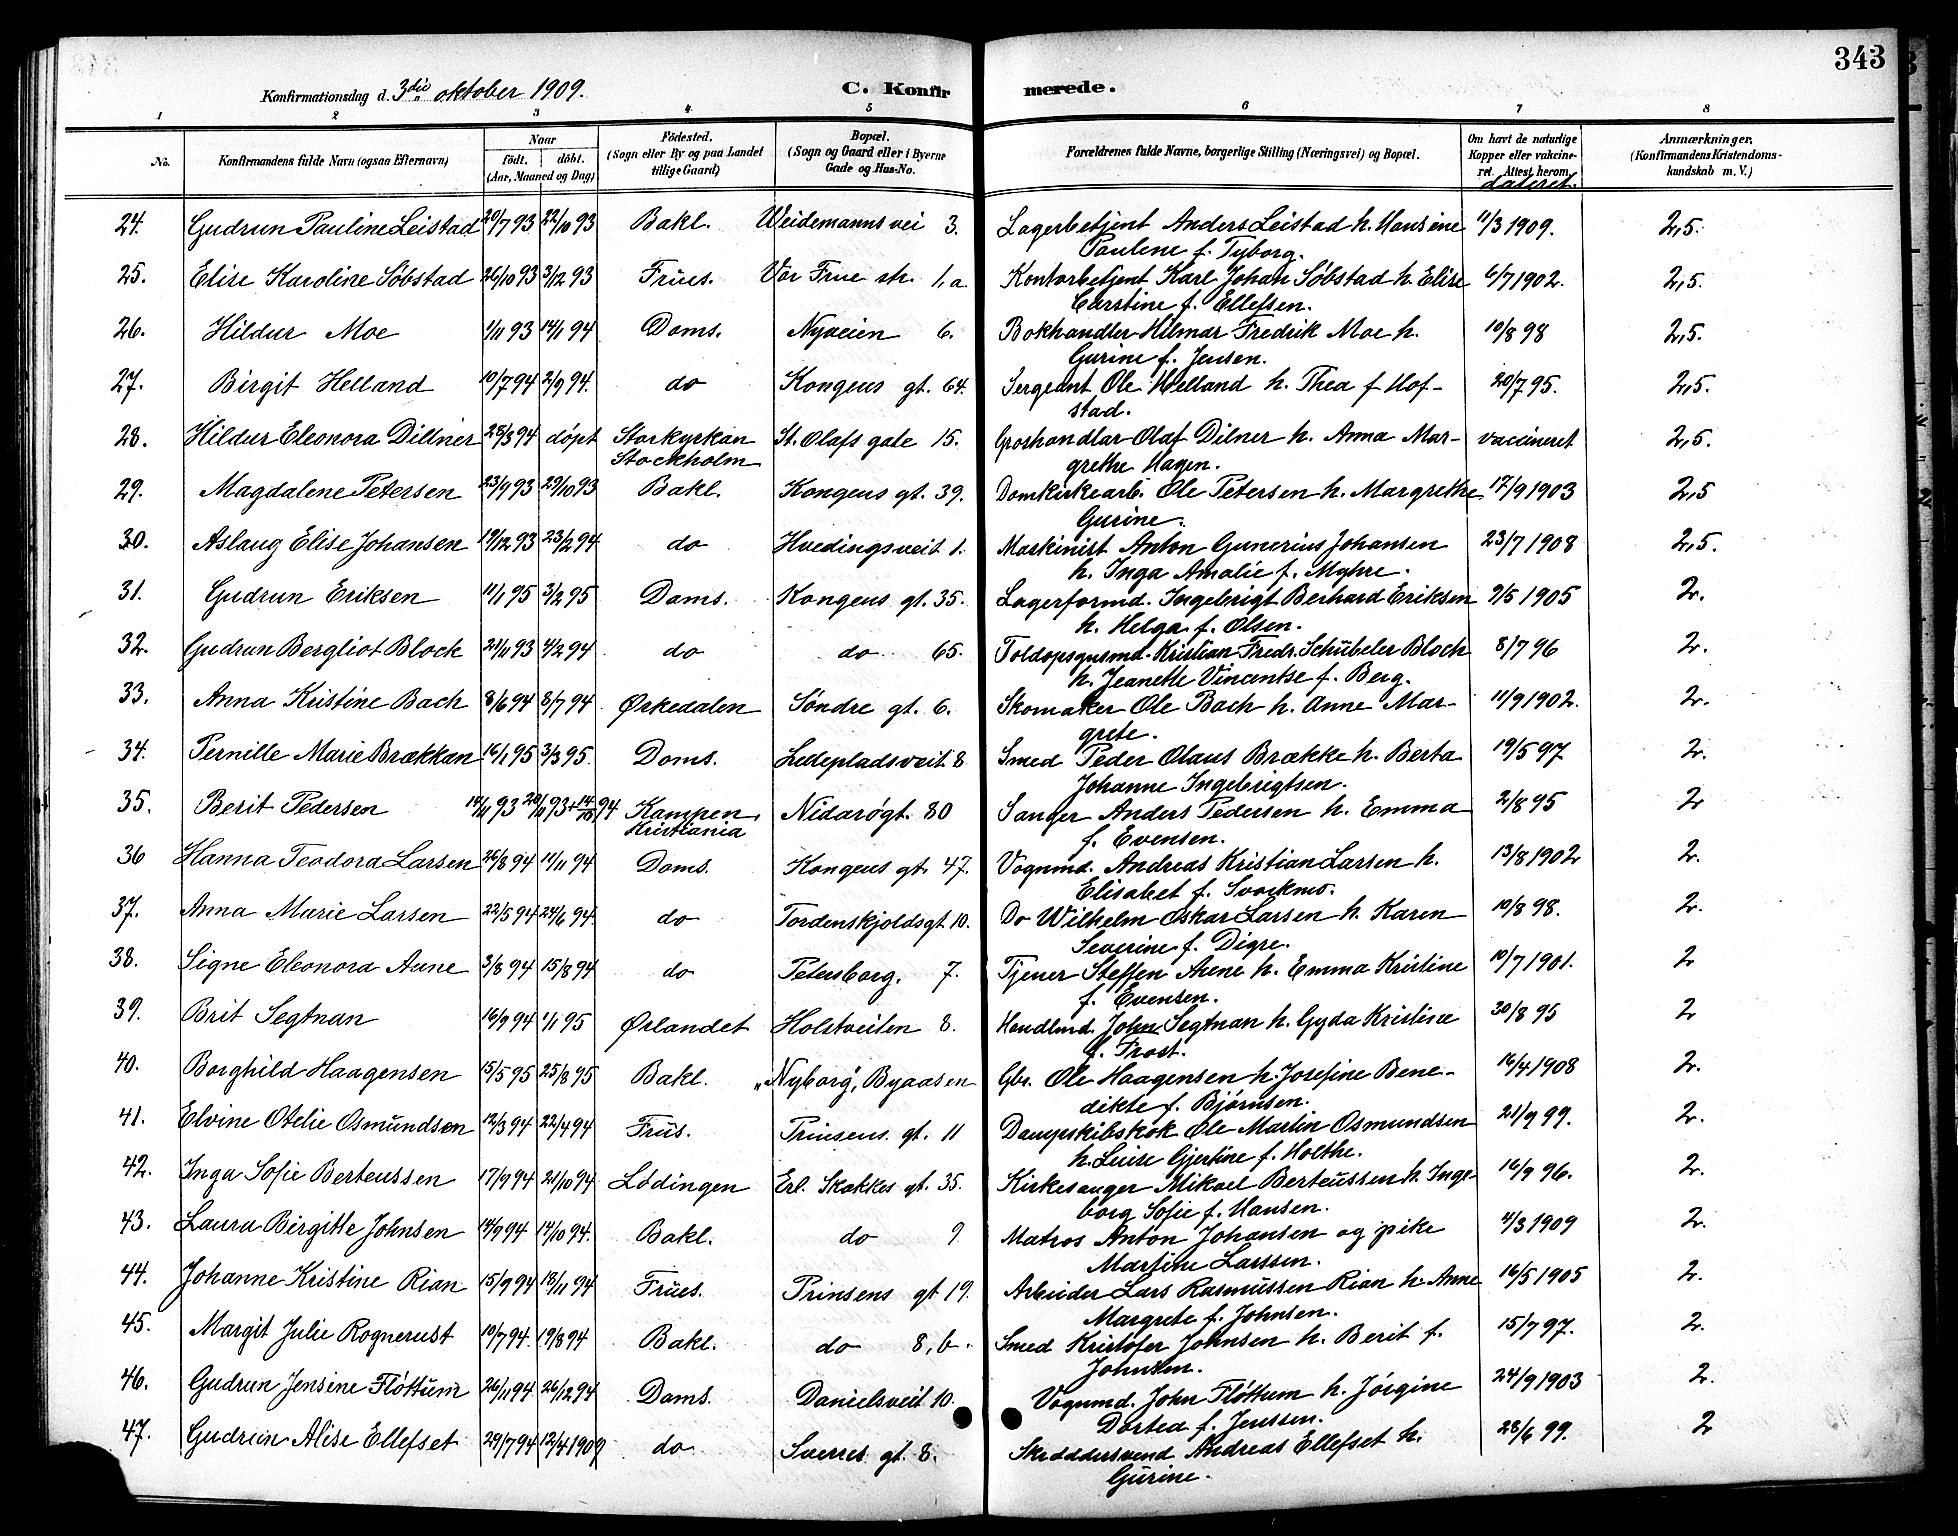 343
Konfirmationsdag d. 3die oktober 1909.
C. Konfirmerede.
1 2 3 4 5 6 7 8
No.
Konfirmandens fulde Navn (ogsaa Efternavn)
Naar
født. døbt.
(Aar, Maaned og Dag)
Fødested.
(Sogn eller By og paa Landet
tillige Gaard)
Bopæl.
(Sogn og Gaard eller i Byerne
Gade og Hus-No.
Forældrenes fulde Navne, borgerlige Stilling (Næringsvei) og Bopæl.
Om havt de naturlige
Kopper eller vakcine-
ret. Attest herom
dateret.
Anmærkninger,
(Konfirmandens Kristendoms-
kundskab m. V.)
24. Gudrun Pauline Leistad 20/7 93 22/10 93 Bakl. Weidemanns vei 3. Lagerbetjent Anders Leistad h. Hansine 11/3 1909. 2,5.
Paulene f. Tyborg.
25. Elise Karoline Söbstad 26/10 93 3/12 93 Frues. Vor Frue str. 1,a. Kontorbetjent Karl Johan Söbstad h. Elise 6/7 1902. 2,5.
Carstine f. Ellefsen.
26. Hildur Moe 1/11 93 14/1 94 Doms. Nyveien 6. Bokhandler Hilmar Fredrik Moe h. 10/8 98 2,5.
Gurine f. Jensen.
27. Birgit Helland 10/7 94 2/9 94. do Kongens gt. 64. Sergeant Ole Helland h. Thea f Hof- 20/7 95. 2,5.
stad.
28. Hildur Eleonora Dillner 25/3 94 döpt Storkyrkan St. Olafs gate 15. Groshandlar Olaf Dilner h. Anna Mar- vaccineret 2,5.
Stockholm grethe Hagen.
29. Magdalene Petersen 23/9 93 29/10 93 Bakl. Kongens gt. 39. Domkirkearb. Ole Petersen h. Margrethe 17/9 1903 2,5
Gurine.
30. Aslaug Elise Johansen 19/12 93 23/2 94 do Hvedingsveit 1. Maskinist Anton Gunerius Johansen 23/7 1908 2,5.
h. Inga Amalie f. Myhre.
31. Gudrun Eriksen 11/1 95 3/2 95 Doms. Kongens gt. 35. Lagerformd. Ingebrigt Berhard Eriksen 9/5 1905 2.
h. Helga f. Olsen.
32. Gudrun Bergliot Block 21/11 93 4/2 94 do do 65. Toldopsynsmd. Kristian Fredr. Schübeler Bloch 8/7 96 2.
h. Jeanette Vincentse f. Berg.
33. Anna Kristine Bach 8/6 94 8/7 94 Ørkedalen Söndre gt. 6. Skomaker Ole Bach h. Anne Mar- 11/9 1902. 2.
grete.
34. Pernille Marie Brækkan 16/1 95 3/3 95. Doms. Ledepladsveit 8 Smed Peder Olaus Brække h. Berta 19/5 97 2.
Johanne Ingebrigtsen.
35. Berit Pedersen 12/11 93 20/11 93 + 14/10 94 Kampen, Nidarögt. 80 Sanger Anders Pedersen h. Emma 2/8 95 2
Kristiania f. Evensen.
36 Hanna Teodora Larsen 26/8 94 11/11 94 Doms. Kongens gt. 47. Vognmd. Andreas Kristian Larsen h. 13/8 1902 2.
Elisabet f. Svorkmo.
37. Anna Marie Larsen 22/5 94 24/6 94. do Tordenskjoldsgt 10. Do Wilhelm Oskar Larsen h. Karen 10/8 98. 2.
Severine f. Digre.
38. Signe Eleonora Aune 3/8 94 15/8 94 do Petersborg. 7. Tjener Steffen Aune h. Emma Kristine 10/7 1901. 2
f. Evensen.
39. Brit Segtnan 16/9 94 1/1 95 Ørlandet Holstveiten 8. Handlmd. John Segtnan h. Gyda Kristine 30/8 95 2
f. Frost.
40. Borghild Haagensen 15/5 95 25/8 95 Bakl. „Nyborg", Byaasen Gbr. Ole Haagensen h. Josefine Bene- 16/4 1908 2.
dikte f. Björnsen.
41. Elvine Otelie Osmundsen 12/3 94 22/4 94 Frus. Prinsens gt. 11 Dampskibskok Ole Martin Osmundsen 21/9 99. 2.
h. Luise Gjertine f. Holthe.
42. Inga Sofie Berteussen 17/9 94 21/10 94 Lødingen Erl. Skakkes gt. 35. Kirkesanger Mikael Berteussen h. Inge- 16/9 96. 2.
borg Sofie f. Hansen.
43. Laura Birgitte Johnsen 14/9 94 14/10 94. Bakl. do 9 Matros Anton Johansen og pike 4/3 1909 2.
Martine Larssen.
44. Johanne Kristine Rian 15/9 94 18/11 94 Frues. Prinsens gt 19. Arbeider Lars Rasmussen Rian h. Anne 16/5 1905 2.
Margrete f. Johnsen.
45. Margit Julie Rognerust 10/7 94. 19/8 94 Bakl. do 8,b. Smed Kristofer Johnsen h. Berit f. 15/7 97. 2.
Johnsen.
46. Gudrun Jensine Flöttum 26/11 94 26/12 94 Doms. Danielsveit 10. Vognmd. John Flöttum h. Jörgine 24/9 1903 2.
Dortea f. Jenssen.
47. Gudrun Alise Ellefset 29/7 94 12/4 1909 do Sverres gt. 8. Skræddersvend Andreas Ellefset h. 28/6 99. 2
Gurine.